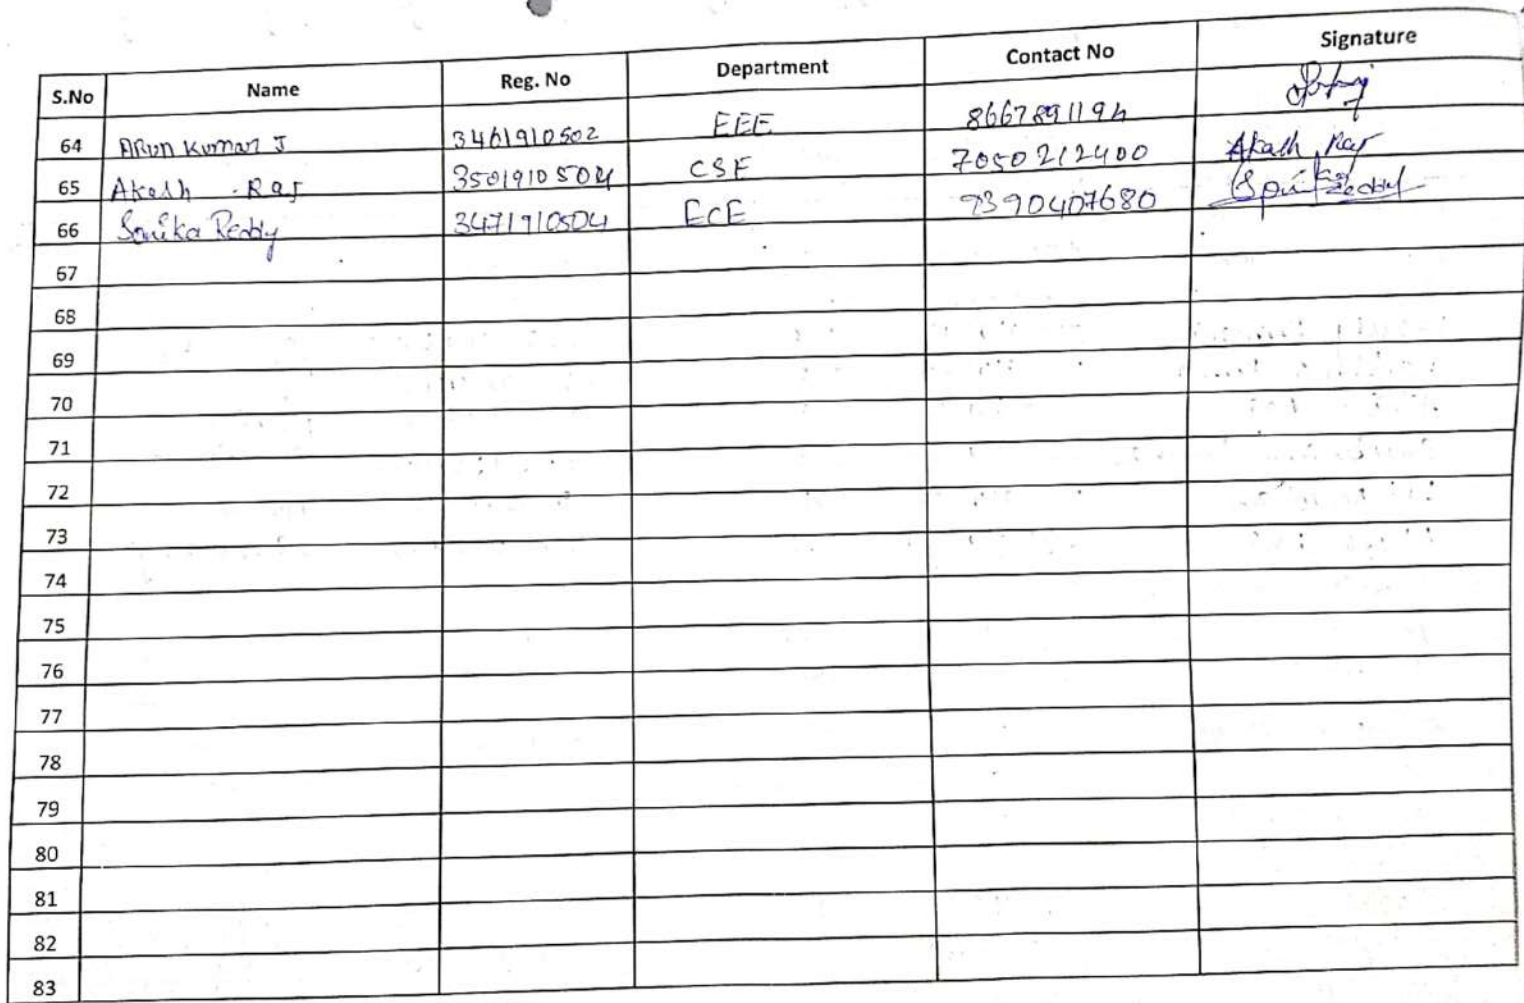 S.No Name Reg. No Department Contact No Signature
64 ARun Kumar J 3461910502 EEE 8667891194
65 Akash . Raj 3501910504 CSE 7050212400 Akash Raj
66 Sonika Reddy 3471910504 ECE 9390407680 Sonika Reddy
67
68
69
70
71
72
73
74
75
76
77
78
79
80
81
82
83